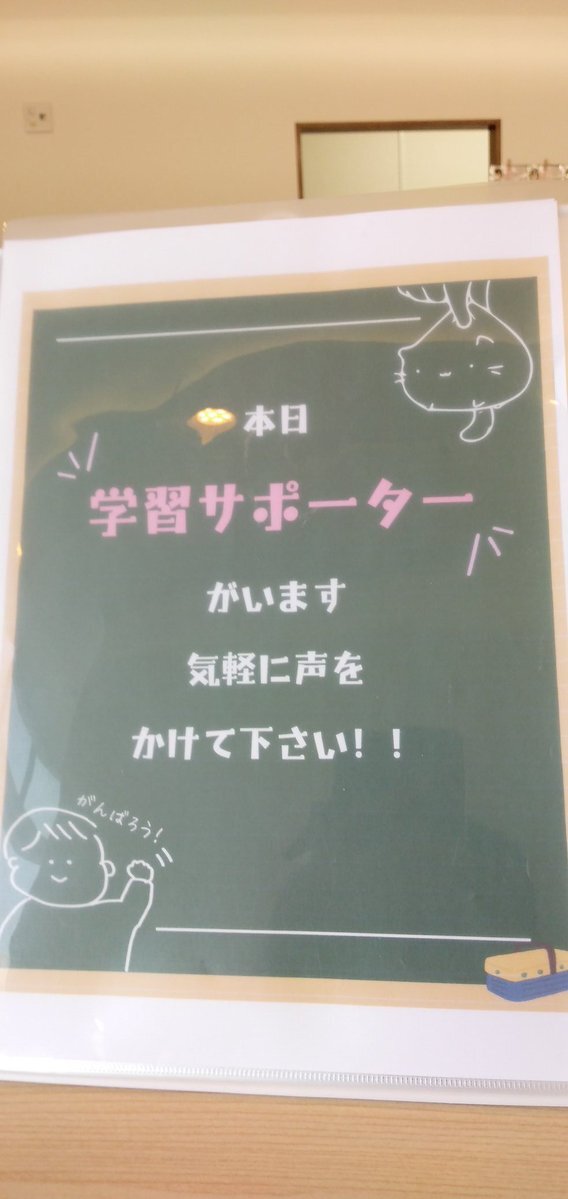 本日
学習サポーター
がいます
気軽に声を
かけて下さい！！
がんばろう！